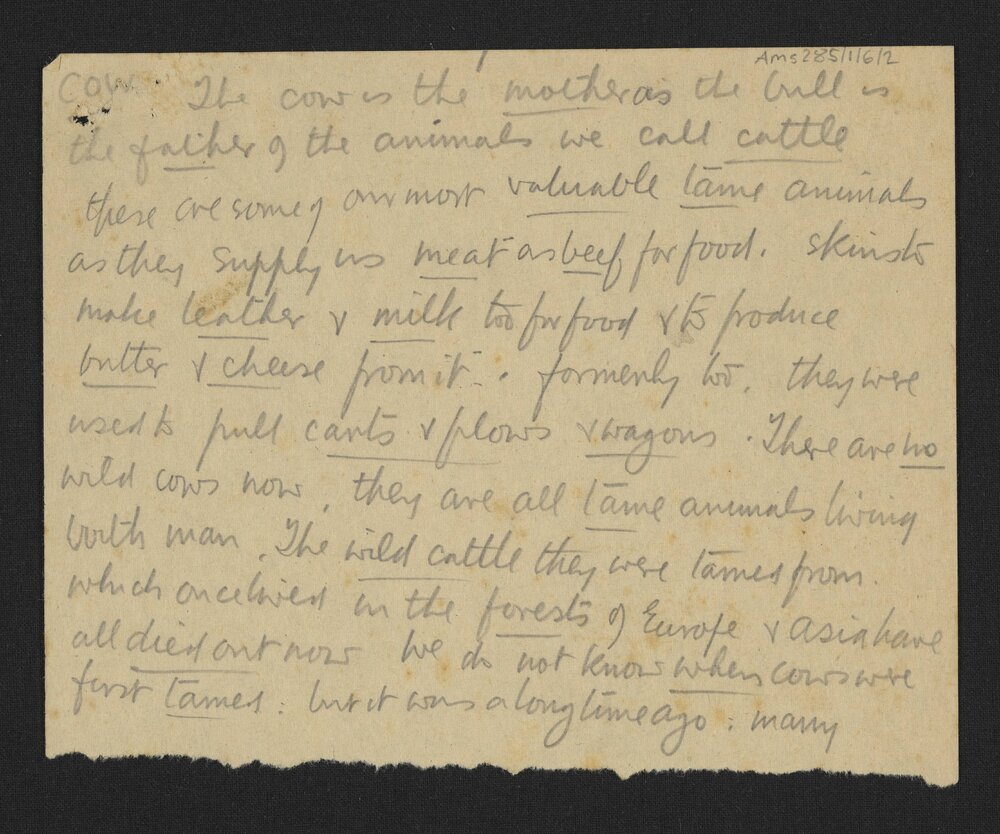 Ams285/1/6/2
COW. The cow is the mother as the bull is
the father of the animals we call cattle
these are some of our most valuable tame animals
as they supply us meat as beef for food. Skins to
make leather & milk too for food & to produce
butter & cheese from it. formerly too, they were
used to pull carts & plows & wagons. There are no
wild cows now, they are all tame animals living
with man. The wild cattle they were tamed from.
which once lived in the forests of Europe & Asia have
all died out now We do not know when cows were
first tamed: but it was a long time ago: many